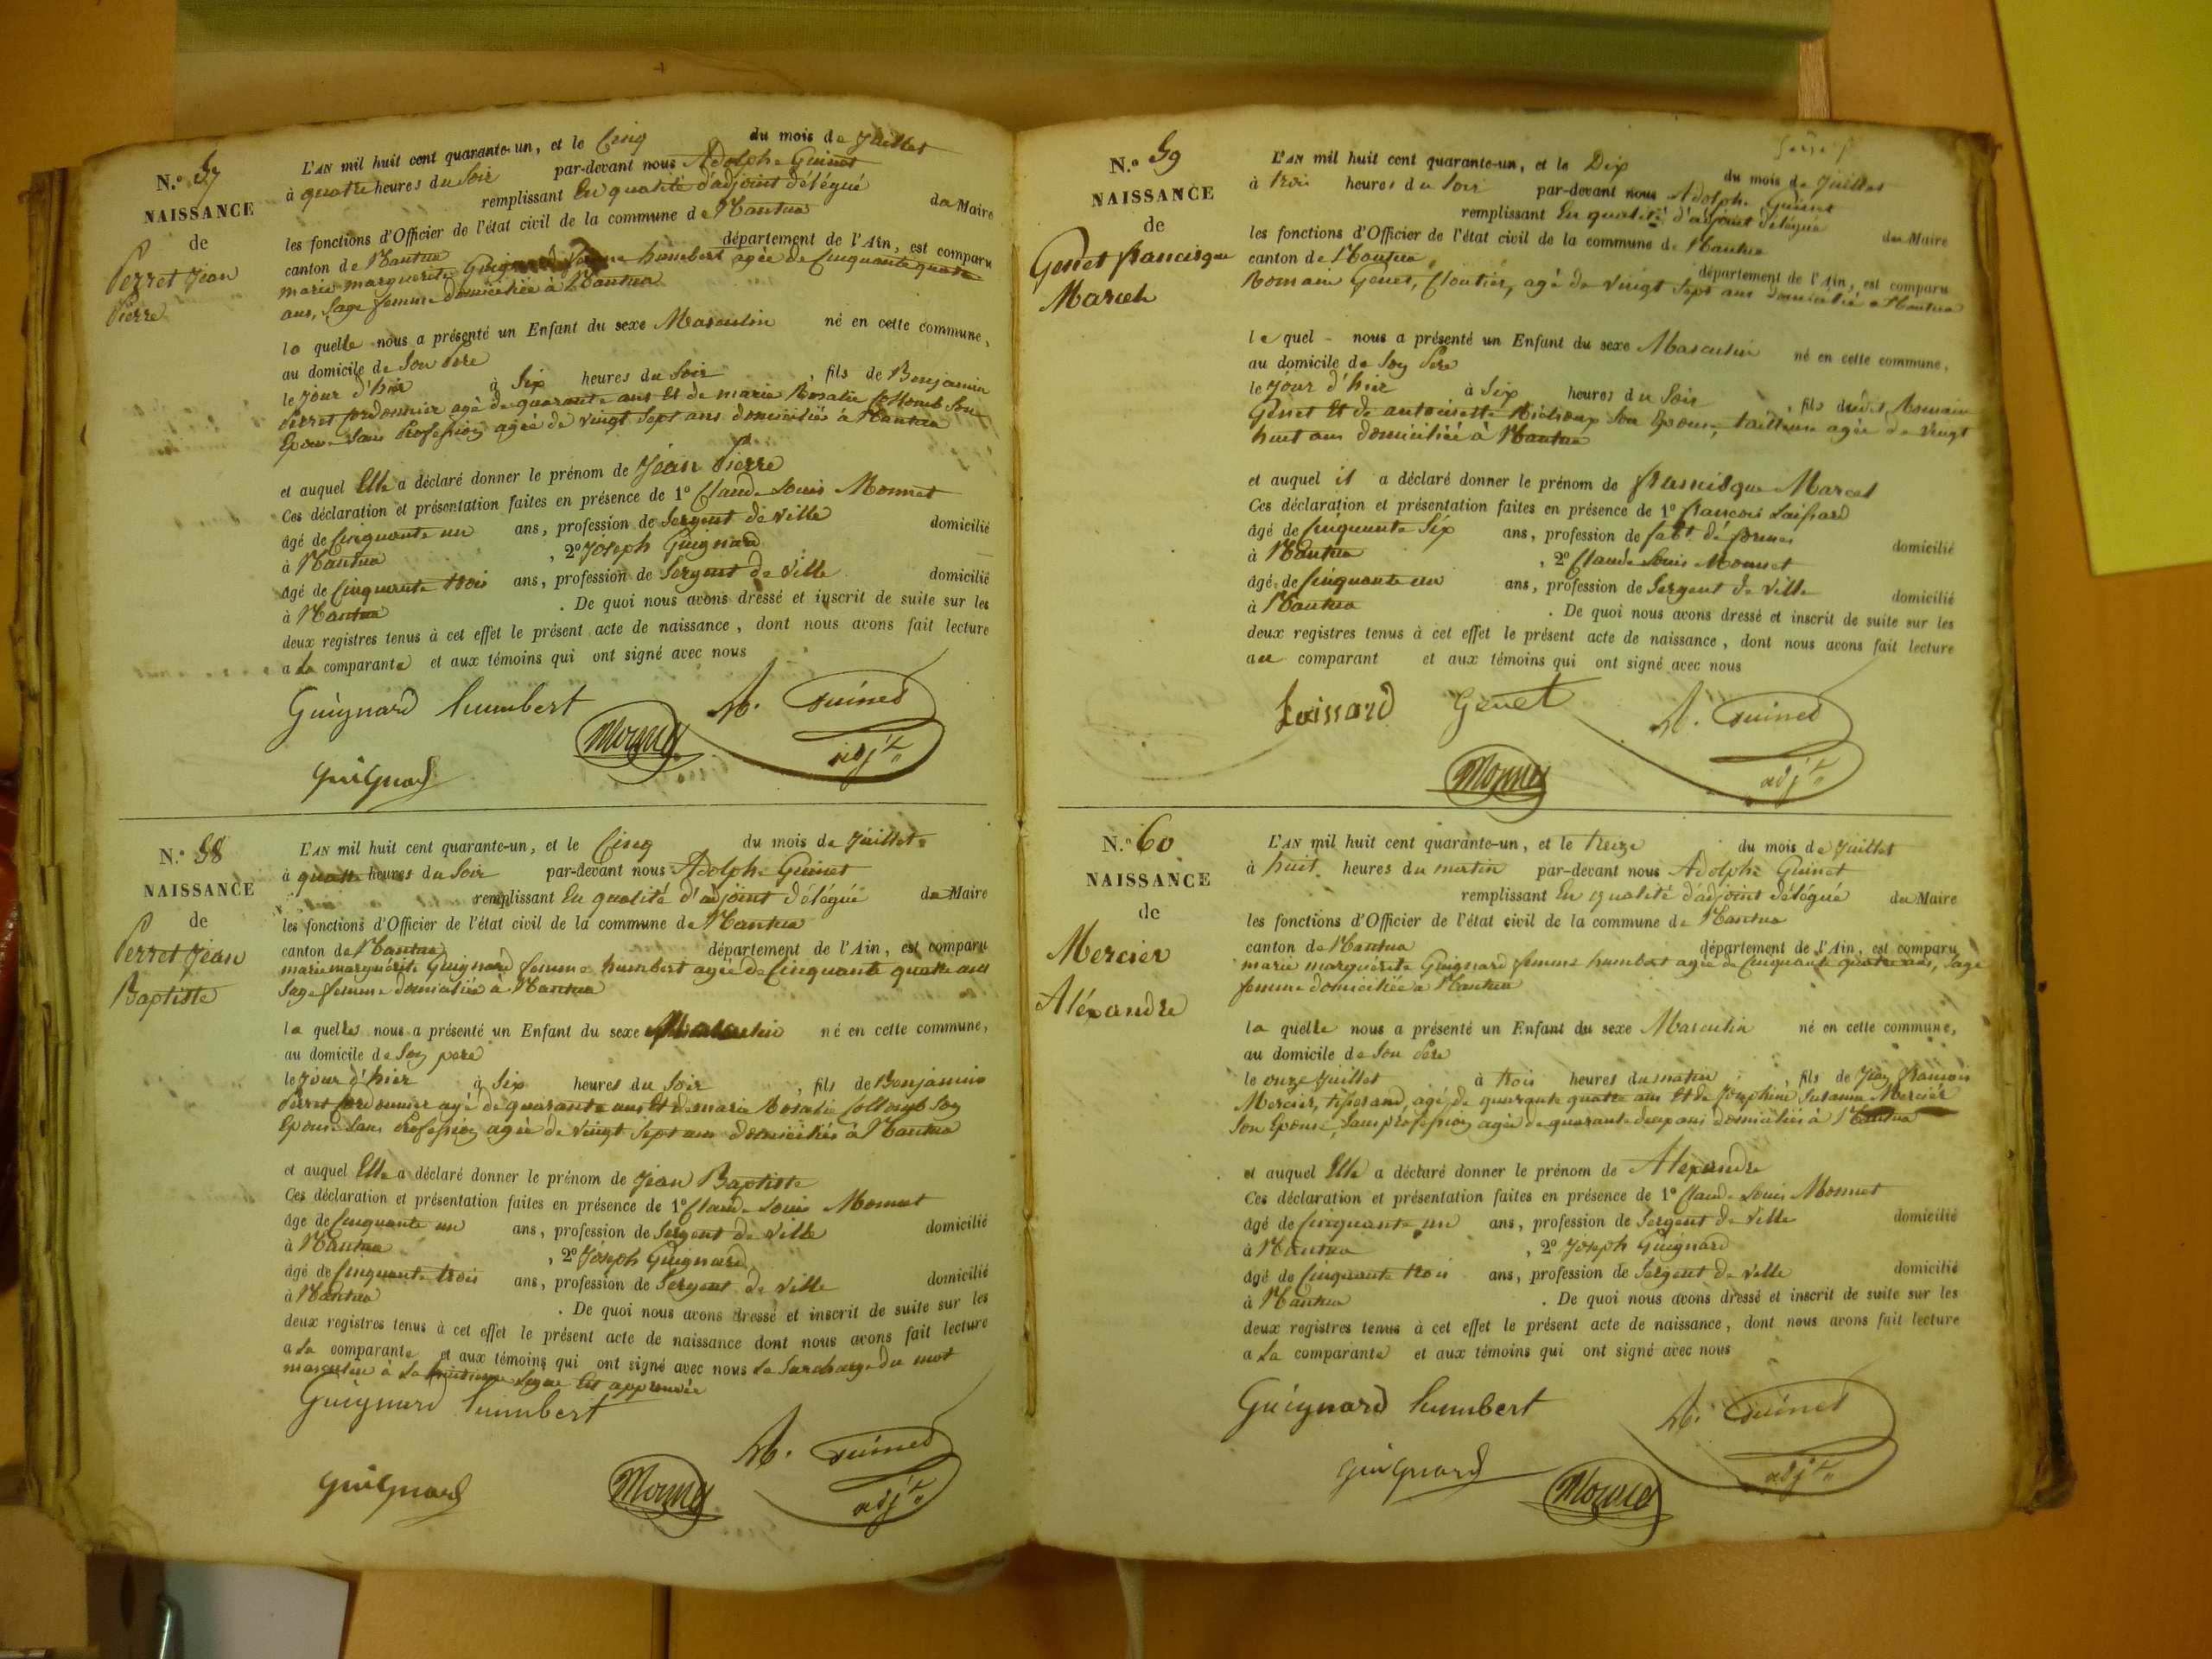 N.o 57
NAISSANCE
de
Perret Jean
Pierre
L'AN mil huit cent quarante-un, et le Cinq du mois de Juillet
à quatre heures du Soir par-devant nous Adolphe Guinet
remplissant En qualité d'adjoint délégué du Maire
les fonctions d'Officier de l'état civil de la commune de Nantua
canton de Nantua département de l'Ain, est comparu
marie marguerite Guignard femme humbert agée de Cinquante quatre
ans, Sage femme domiciliée à Nantua
la quelle nous a présenté un Enfant du sexe Masculin né en cette commune,
au domicile de Son Père
le Jour d'hier à Six heures du Soir, fils de Benjamin
Perret Cordonnier agé de quarante ans Et de marie Rosalie Collomb Son
Epouse Sans Profession agée de vingt Sept ans domiciliés à Nantua
et auquel Elle a déclaré donner le prénom de Jean Pierre
Ces déclaration et présentation faites en présence de 1o Claude Louis Monnet
âgé de Cinquante un ans, profession de Sergent de ville domicilié
à Nantua, 2o Joseph Guignard
âgé de Cinquante trois ans, profession de Sergent de Ville domicilié
à Nantua. De quoi nous avons dressé et inscrit de suite sur les
deux registres tenus à cet effet le présent acte de naissance, dont nous avons fait lecture
a La comparante et aux témoins qui ont signé avec nous
Guignard humbert
Monnet
A. Guinet
adjt
Guignard
N.o 58
NAISSANCE
de
Perret Jean
Baptiste
L'AN mil huit cent quarante-un, et le Cinq du mois de Juillet
à quatre heures du Soir par-devant nous Adolphe Guinet
remplissant En qualité d'adjoint délégué du Maire
les fonctions d'Officier de l'état civil de la commune de Nantua
canton de Nantua département de l'Ain, est comparu
marie marguerite Guignard femme humbert agée de Cinquante quatre ans
Sage femme domiciliée à Nantua
la quelle nous a présenté un Enfant du sexe Masculin né en cette commune,
au domicile de Son père
le Jour d'hier à Six heures du Soir, fils de Benjamin
Perret Cordonnier agé de quarante ans Et de marie Rosalie Collomb Son
Epouse Sans Profession agée de vingt Sept ans domiciliés à Nantua
et auquel Elle a déclaré donner le prénom de Jean Baptiste
Ces déclaration et présentation faites en présence de 1o Claude Louis Monnet
âgé de Cinquante un ans, profession de Sergent de ville domicilié
à Nantua, 2o Joseph Guignard
âgé de Cinquante trois ans, profession de Sergent de ville domicilié
à Nantua. De quoi nous avons dressé et inscrit de suite sur les
deux registres tenus à cet effet le présent acte de naissance dont nous avons fait lecture
a La comparante et aux témoins qui ont signé avec nous La Surcharge du mot
masculin à La huitieme Ligne Est approuvée
Guignard humbert
A. Guinet
adjt
Guignard
Monnet
N.o 59
NAISSANCE
de
Genet francisque
Marcel
L'AN mil huit cent quarante-un, et le Dix du mois de Juillet
à trois heures du Soir par-devant nous Adolphe Guinet
remplissant En qualité d'adjoint délégué du Maire
les fonctions d'Officier de l'état civil de la commune de Nantua
canton de Nantua département de l'Ain, est comparu
Romain Genet, Cloutier, agé de vingt Sept ans domicilié a Nantua
le quel nous a présenté un Enfant du sexe Masculin né en cette commune,
au domicile de Son Père
le Jour d'hier à Six heures du Soir, fils dudit Romain
Genet Et de antoinette Son Epouse, tailleuse agée de vingt
huit ans domiciliée à Nantua
et auquel il a déclaré donner le prénom de francisque Marcel
Ces déclaration et présentation faites en présence de 1o françois Laissard
âgé de Cinquante Six ans, profession de fabt. de domicilié
à Nantua, 2o Claude Louis Monnet
âgé de Cinquante un ans, profession de Sergent de Ville domicilié
à Nantua. De quoi nous avons dressé et inscrit de suite sur les
deux registres tenus à cet effet le présent acte de naissance, dont nous avons fait lecture
au comparant et aux témoins qui ont signé avec nous
Laissard
Genet
A. Guinet
adjt
Monnet
N.o 60
NAISSANCE
de
Mercier
Aléxandre
L'AN mil huit cent quarante-un, et le treize du mois de Juillet
à huit heures du matin par-devant nous Adolphe Guinet
remplissant En qualité d'adjoint délégué du Maire
les fonctions d'Officier de l'état civil de la commune de Nantua
canton de Nantua département de l'Ain, est comparu
marie marguérite Guignard femme humbert agée de Cinquante quatre ans, Sage
femme domiciliée a Nantua
la quelle nous a présenté un Enfant du sexe Masculin né en cette commune,
au domicile de Son Père
le onze Juillet à trois heures du matin, fils de Jean françois
Mercier, tisserand, agé de quarante quatre ans Et de Joséphine Susanne Mercier
Son Epouse, Sans profession agée de quarante deux ans domiciliés à Nantua
et auquel Elle a déclaré donner le prénom de Alexandre
Ces déclaration et présentation faites en présence de 1o Claude Louis Monnet
âgé de Cinquante un ans, profession de Sergent de Ville domicilié
à Nantua, 2o Joseph Guignard
âgé de Cinquante trois ans, profession de Sergent de Ville domicilié
à Nantua. De quoi nous avons dressé et inscrit de suite sur les
deux registres tenus à cet effet le présent acte de naissance, dont nous avons fait lecture
a La comparante et aux témoins qui ont signé avec nous
Guignard humbert
A. Guinet
adjt
Guignard
Monnet